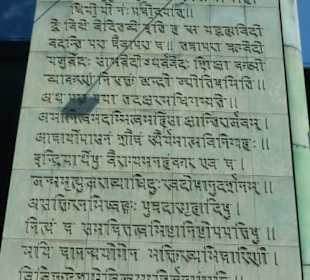 धियो यो नः प्रचोदयात्॥
द्वे विद्ये वेदितव्ये इति ह स्म यद्ब्रह्मविदो
वदन्ति परा चैवापरा च॥ तत्रापरा ऋग्वेदो
यजुर्वेदः सामवेदोऽथर्ववेदः शिक्षा कल्पो
व्याकरणं निरुक्तं छन्दो ज्योतिषमिति॥
अथ परा यया तदक्षरमधिगम्यते॥
अमानित्वमदम्भित्वमहिंसा क्षान्तिरार्जवम्।
आचार्योपासनं शौचं स्थैर्यमात्मविनिग्रहः॥
इन्द्रियार्थेषु वैराग्यमनहंकार एव च।
जन्ममृत्युजराव्याधिदुःखदोषानुदर्शनम्॥
असक्तिरनभिष्वङ्गः पुत्रदारगृहादिषु।
नित्यं च समचित्तत्वमिष्टानिष्टोपपत्तिषु॥
मयि चानन्ययोगेन भक्तिरव्यभिचारिणी।